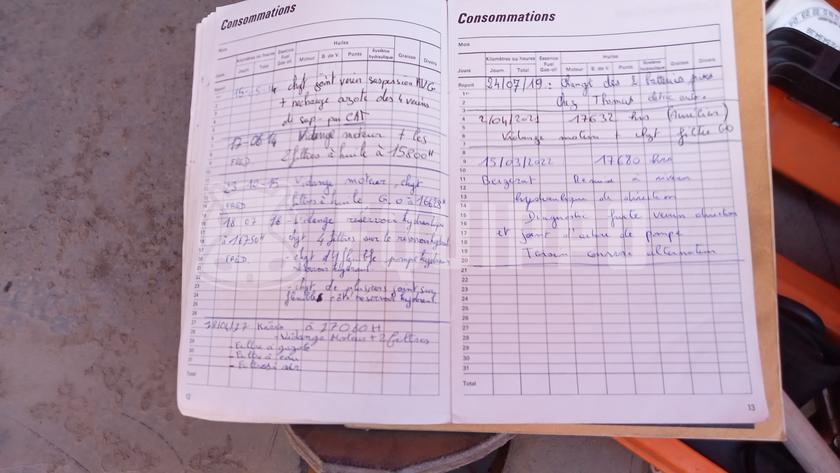 Consommations
Mois
Kilomètres ou heures
Essence Fuel Gas-oil
Huiles
Graisse
Divers
Jours
Jour.
Total
Moteur
B. de V.
Ponts
Système hydraulique
Report
15-5-14 chgt joint verin suspension AVG
+ recharge azote des 4 verins
de sup. par CAT
Vidange moteur + les
FRED 2 filtres à huile à 15800H
23-10-15 Vidange moteur, chgt
FRED filtres à huile G.O à
18 07 16 - Vidange reservoir hydraulique
à 16750H chgt 4 filtres sur le reservoir hydraul
FRED - chgt flexible pompe hydrau
reservoir hydraul
- chgt de plusieurs joints sur
flexibles côté reservoir hydraul.
à 17060H
- Vidange Moteur + 2 filtres
- Filtre à gazole
- Filtre à eau
- Filtres air
Total
12
Consommations
Mois
Kilomètres ou heures
Essence Fuel Gas-oil
Huiles
Graisse
Divers
Jours
Jour.
Total
Moteur
B. de V.
Ponts
Système hydraulique
Report
24/07/19: Changt des 2 batteries
chez Thomas
2/04/2021 17632 hrs (Aurelien)
Vidange moteur + chgt filtre GO
15/03/2022 17680 hrs
Bergerat Remise à niveau
hydraulique de direction
Diagnostic fuite verin direction
et joint l'arbre de pompe
Tension courroie alternateur
Total
13